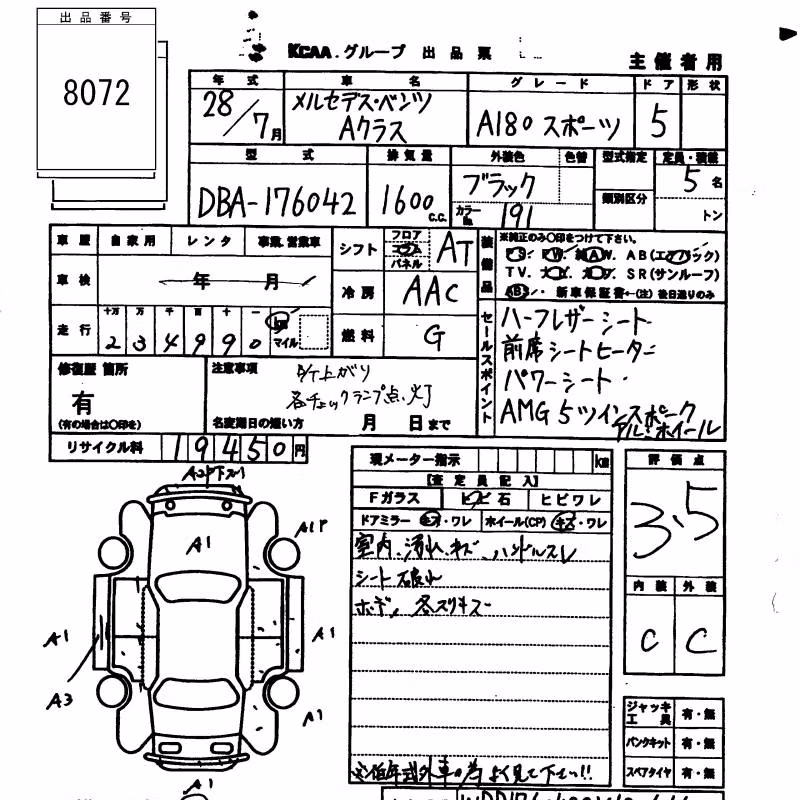 出品番号
8072
KCAA.グループ 出品票
主催者用
年式 車名 グレード ドア 形状
28/7月 メルセデス・ベンツ Aクラス A180 スポーツ 5
型式 排気量 外装色 色替 型式指定 定員・積載
DBA-176042 1600c.c. ブラック 5名
カラーNo. 191 類別区分 トン
車歴 自家用 レンタ 事業.営業車
シフト フロア コラム パネル AT
装備品 ※純正のみ○印をつけて下さい。
PS. PW. AW. AB(エアバック)
TV. SR(サンルーフ)
ABS. 新車保証書←(注)後日送りのみ
車検 年 月
冷房 AAC
走行 十万 万 千 百 十 一
234990 km マイル
燃料 G
セールスポイント
ハーフレザーシート
前席シートヒーター
パワーシート
AMG 5ツインスポーク
アルミホイール
修復歴 箇所
有
(有の場合は○印を)
注意事項
各チェックランプ点灯
名変期日の短い方 月 日まで
リサイクル料 19450円
現メーター指示 km
【査定員記入】
Fガラス トビ石 ヒビワレ
ドアミラー キズ・ワレ ホイール(CP) キズ・ワレ
室内、汚れ、キズ、ハンドルスレ
シート破れ
ボディ 各スリキズ
評価点
3.5
内装 外装
C C
A1
A1P
A1
A1
A3
A1
A1
ジャッキ工具 有・無
パンクキット 有・無
スペアタイヤ 有・無